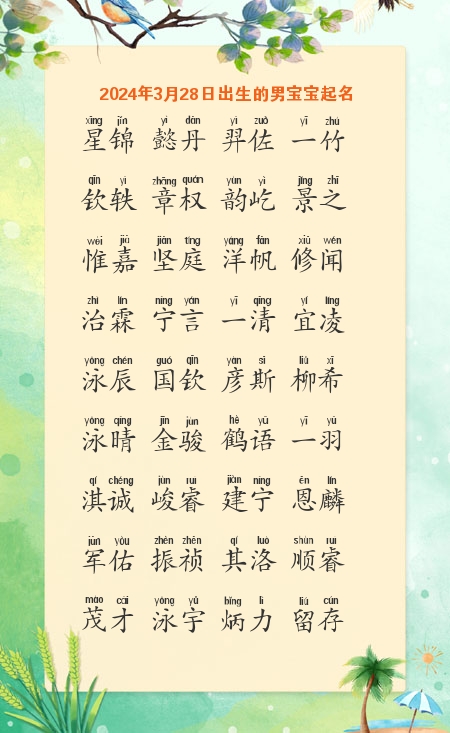 2024年3月28日出生的男宝宝起名
xīng jǐn yì dān yì zuǒ yī zhú
星锦 懿丹 羿佐 一竹
qīn yì zhāng quán yùn yì jǐng zhī
钦轶 章权 韵屹 景之
wéi jiā jiān tíng yáng fān xiū wén
惟嘉 坚庭 洋帆 修闻
zhì lín níng yán yī qīng yí líng
治霖 宁言 一清 宜凌
yǒng chén guó qīn yàn sī liǔ xī
泳辰 国钦 彦斯 柳希
yǒng qíng jīn jùn hè yǔ yī yǔ
泳晴 金骏 鹤语 一羽
qí chéng jùn ruì jiàn níng ēn lín
淇诚 峻睿 建宁 恩麟
jūn yòu zhèn zhēn qí luò shùn ruì
军佑 振祯 其洛 顺睿
mào cái yǒng yǔ bǐng lì liú cún
茂才 泳宇 炳力 留存